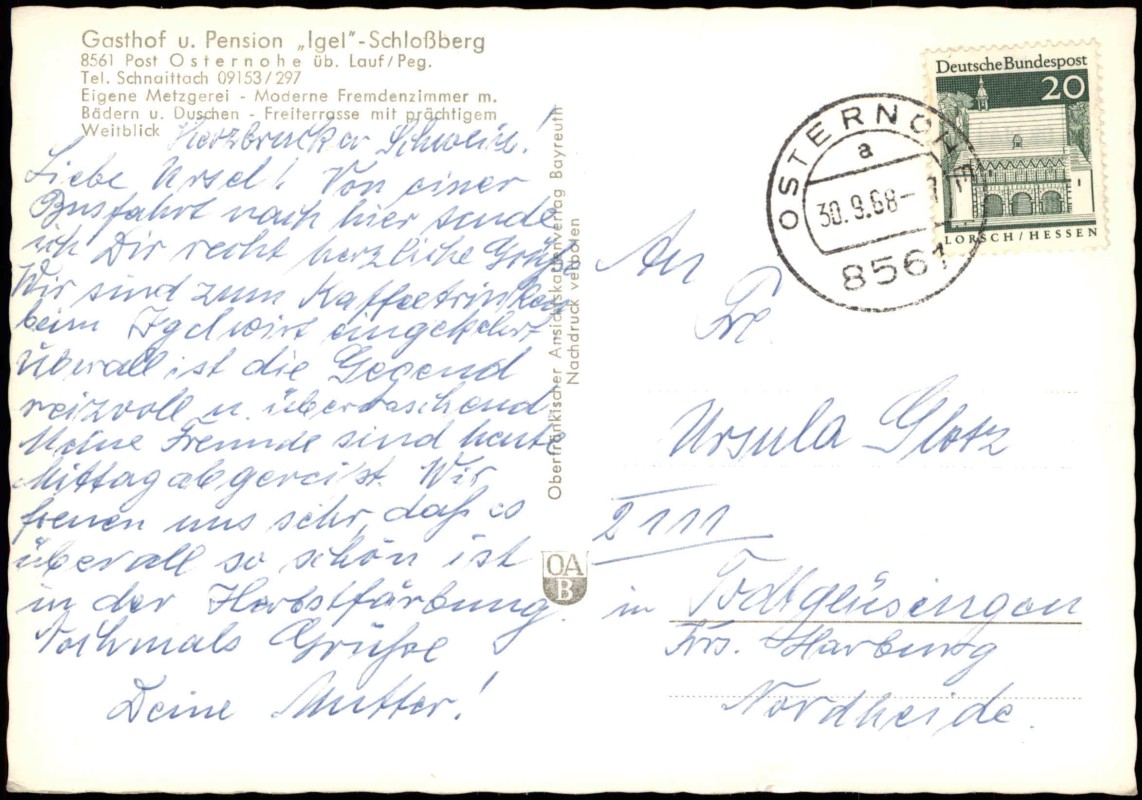 Gasthof u. Pension „Igel"-Schloßberg
8561 Post Osternohe üb. Lauf/Peg.
Tel. Schnaittach 09153/297
Eigene Metzgerei - Moderne Fremdenzimmer m.
Bädern u. Duschen - Freiterrasse mit prächtigem
Weitblick
Hersbrucker Schweiz!
Liebe Ursel! Von einer
Busfahrt nach hier sende
ich Dir recht herzliche Grüße
Wir sind zum Kaffeetrinken
beim Igelwirt eingekehrt
Überall ist die Gegend
reizvoll u. überraschend
Meine Freunde sind heute
Mittag abgereist. Wir
freuen uns sehr, daß es
überall so schön ist
in der Herbstfärbung.
Nochmals Grüße
Deine Mutter!
Oberfränkischer Ansichtskartenverlag Bayreuth
Nachdruck verboten
OA
B
Deutsche Bundespost
20
LORSCH/HESSEN
OSTERNOHE
a
30.9.68-
8561
An
Fr.
Ursula Glotz
2111
in Todtglüsingen
Krs. Harburg
Nordheide.